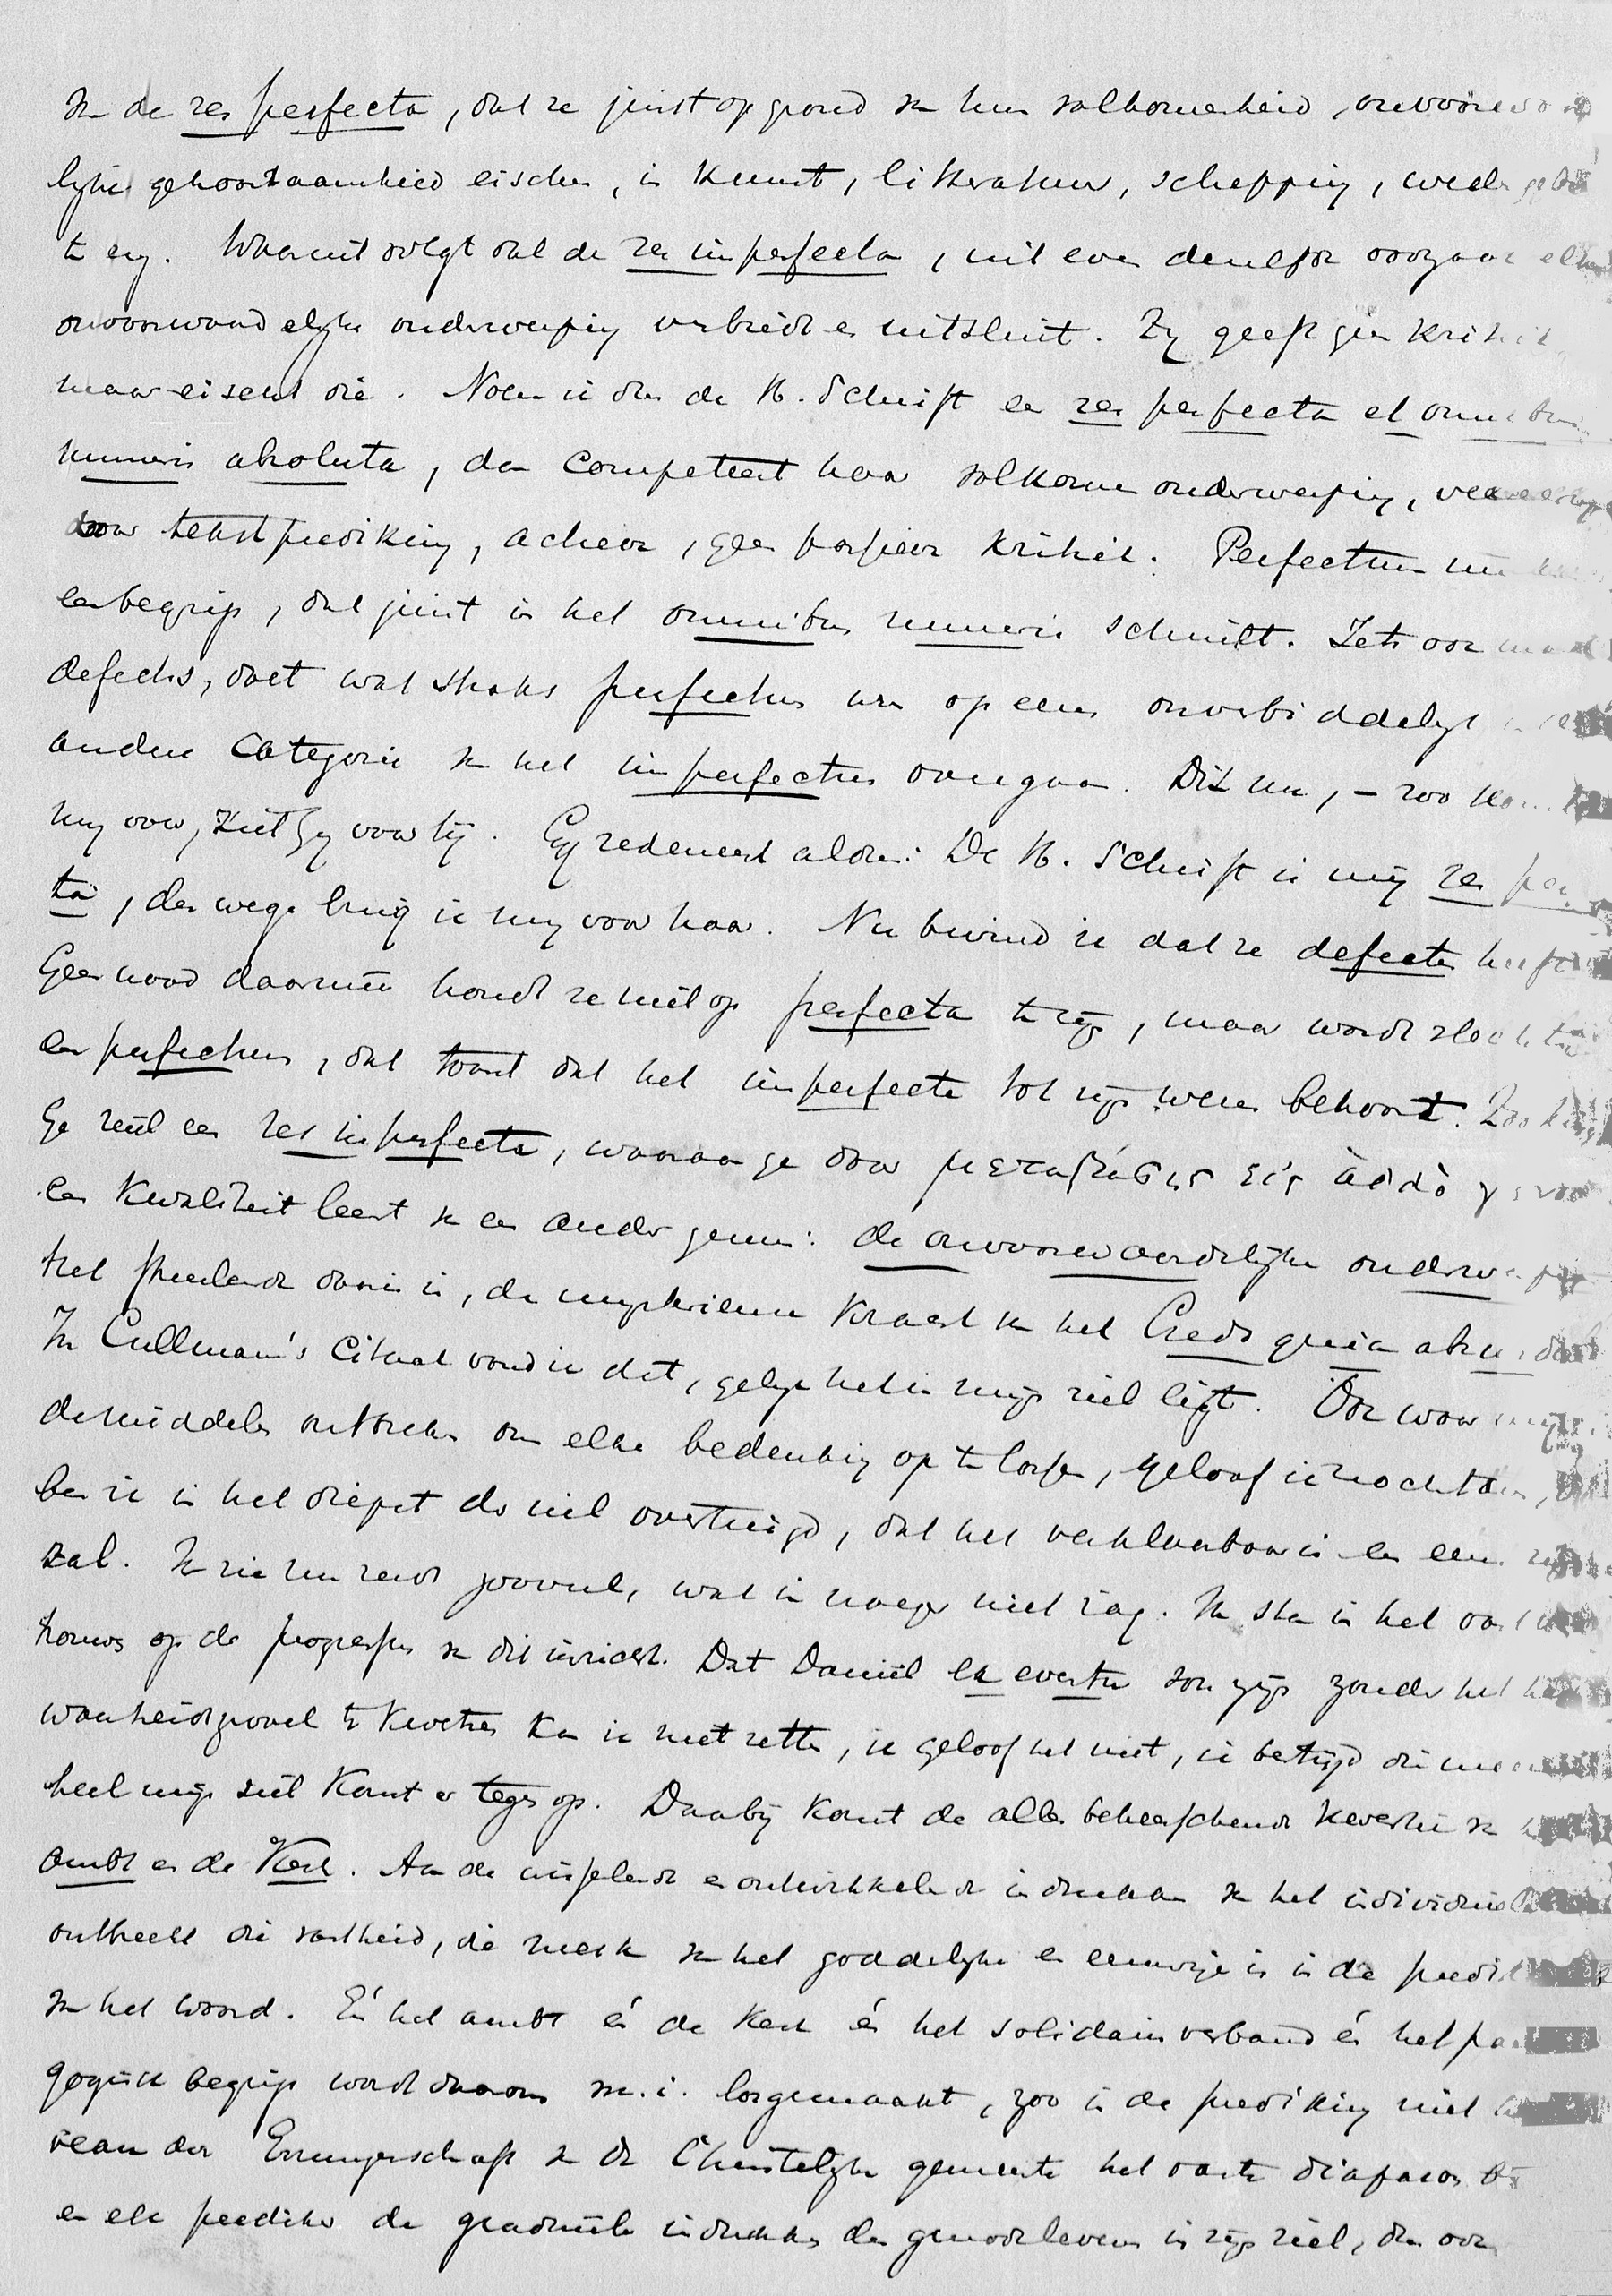 van de res perfecta, dat ze juist op grond van hun volkomenheid, onvoorwaar
lijke gehoorzaamheid eischen, in kunst, literatuur, schepping, wedergeboor
te enz. Waaruit volgt dat de res imperfecta, uit even denzelfde oorzaak elke
onvoorwaardelijke onderwerping verbiedt en uitsluit. Zij geeft geen kritiek
maar eischt die. Noem ik dus de H. Schrift een res perfecta et omnibus
numeris absoluta, dan competeert haar volkomen onderwerping,
door tekstprediking, achten, geen kritiek. Perfectum nu
een begrip, dat juist in het omnibus numeris schuilt. Iets ook maar
defects, doet wat straks perfectum was op eens onverbiddelijk in een
andere categorie van het imperfectum overgaan. Dit nu, – zoo komt het
mij voor, ziet gij voorbij. Gij redeneert aldus: De H. Schrift is mij res perfec
ta, deswege buig ik mij voor haar. Nu bevind ik dat ze defecten heeft
Geen nood daarmeê houdt ze niet op perfecta te zijn, maar wordt slechts
een perfectum, dat toont dat het imperfecte tot zijn wezen behoort. Zoo
Ge ziet een res imperfecta, waaraan ge door μεταβάσις εἰς ἄλλο γενος
een kwaliteit leent van een ander genus: de onvoorwaardelijke onderwerping
Het prikkelende daarin is, de mysterieuse kracht van het Credo quia absurdum
In Cullmann's citaat vond ik dat, gelijk het in mijn ziel ligt. Ook waar mij
de middelen ontbreken om elke bedenking op te lossen, geloof ik nochtans,
ben ik in het diepst der ziel overtuigd, dat het verklaarbaar is en eens
zal. Ik zie nu reeds zooveel, wat ik vroeger niet zag. Ik sta in het vast
trouwen op de progressus van dit inzicht. Dat Daniël ex eventu zou zijn zonder het
waarheidsgevoel te kwetsen kan ik niet zetten, ik geloof het niet, ik betwijfel die
heel mijn ziel komt er tegen op. Daarbij komt de alles beheerschende kwestie van
ambt en de Kerk. Aan de wisselende en ontwikkelende indrukken van het individu
ontbreekt die vastheid, die merk van het goddelijke en eeuwige is in de predik
van het woord. Én het ambt én de Kerk én het solidair verband én het pae
gogisch begrip wordt daarom m.i. losgemaakt, zoo in de prediking niet
van der Errungenschaft van de Christelijke gemeente het vaste diapason
en elk prediker de gradueele indrukken des gemoedslevens in zijn ziel, dan ook